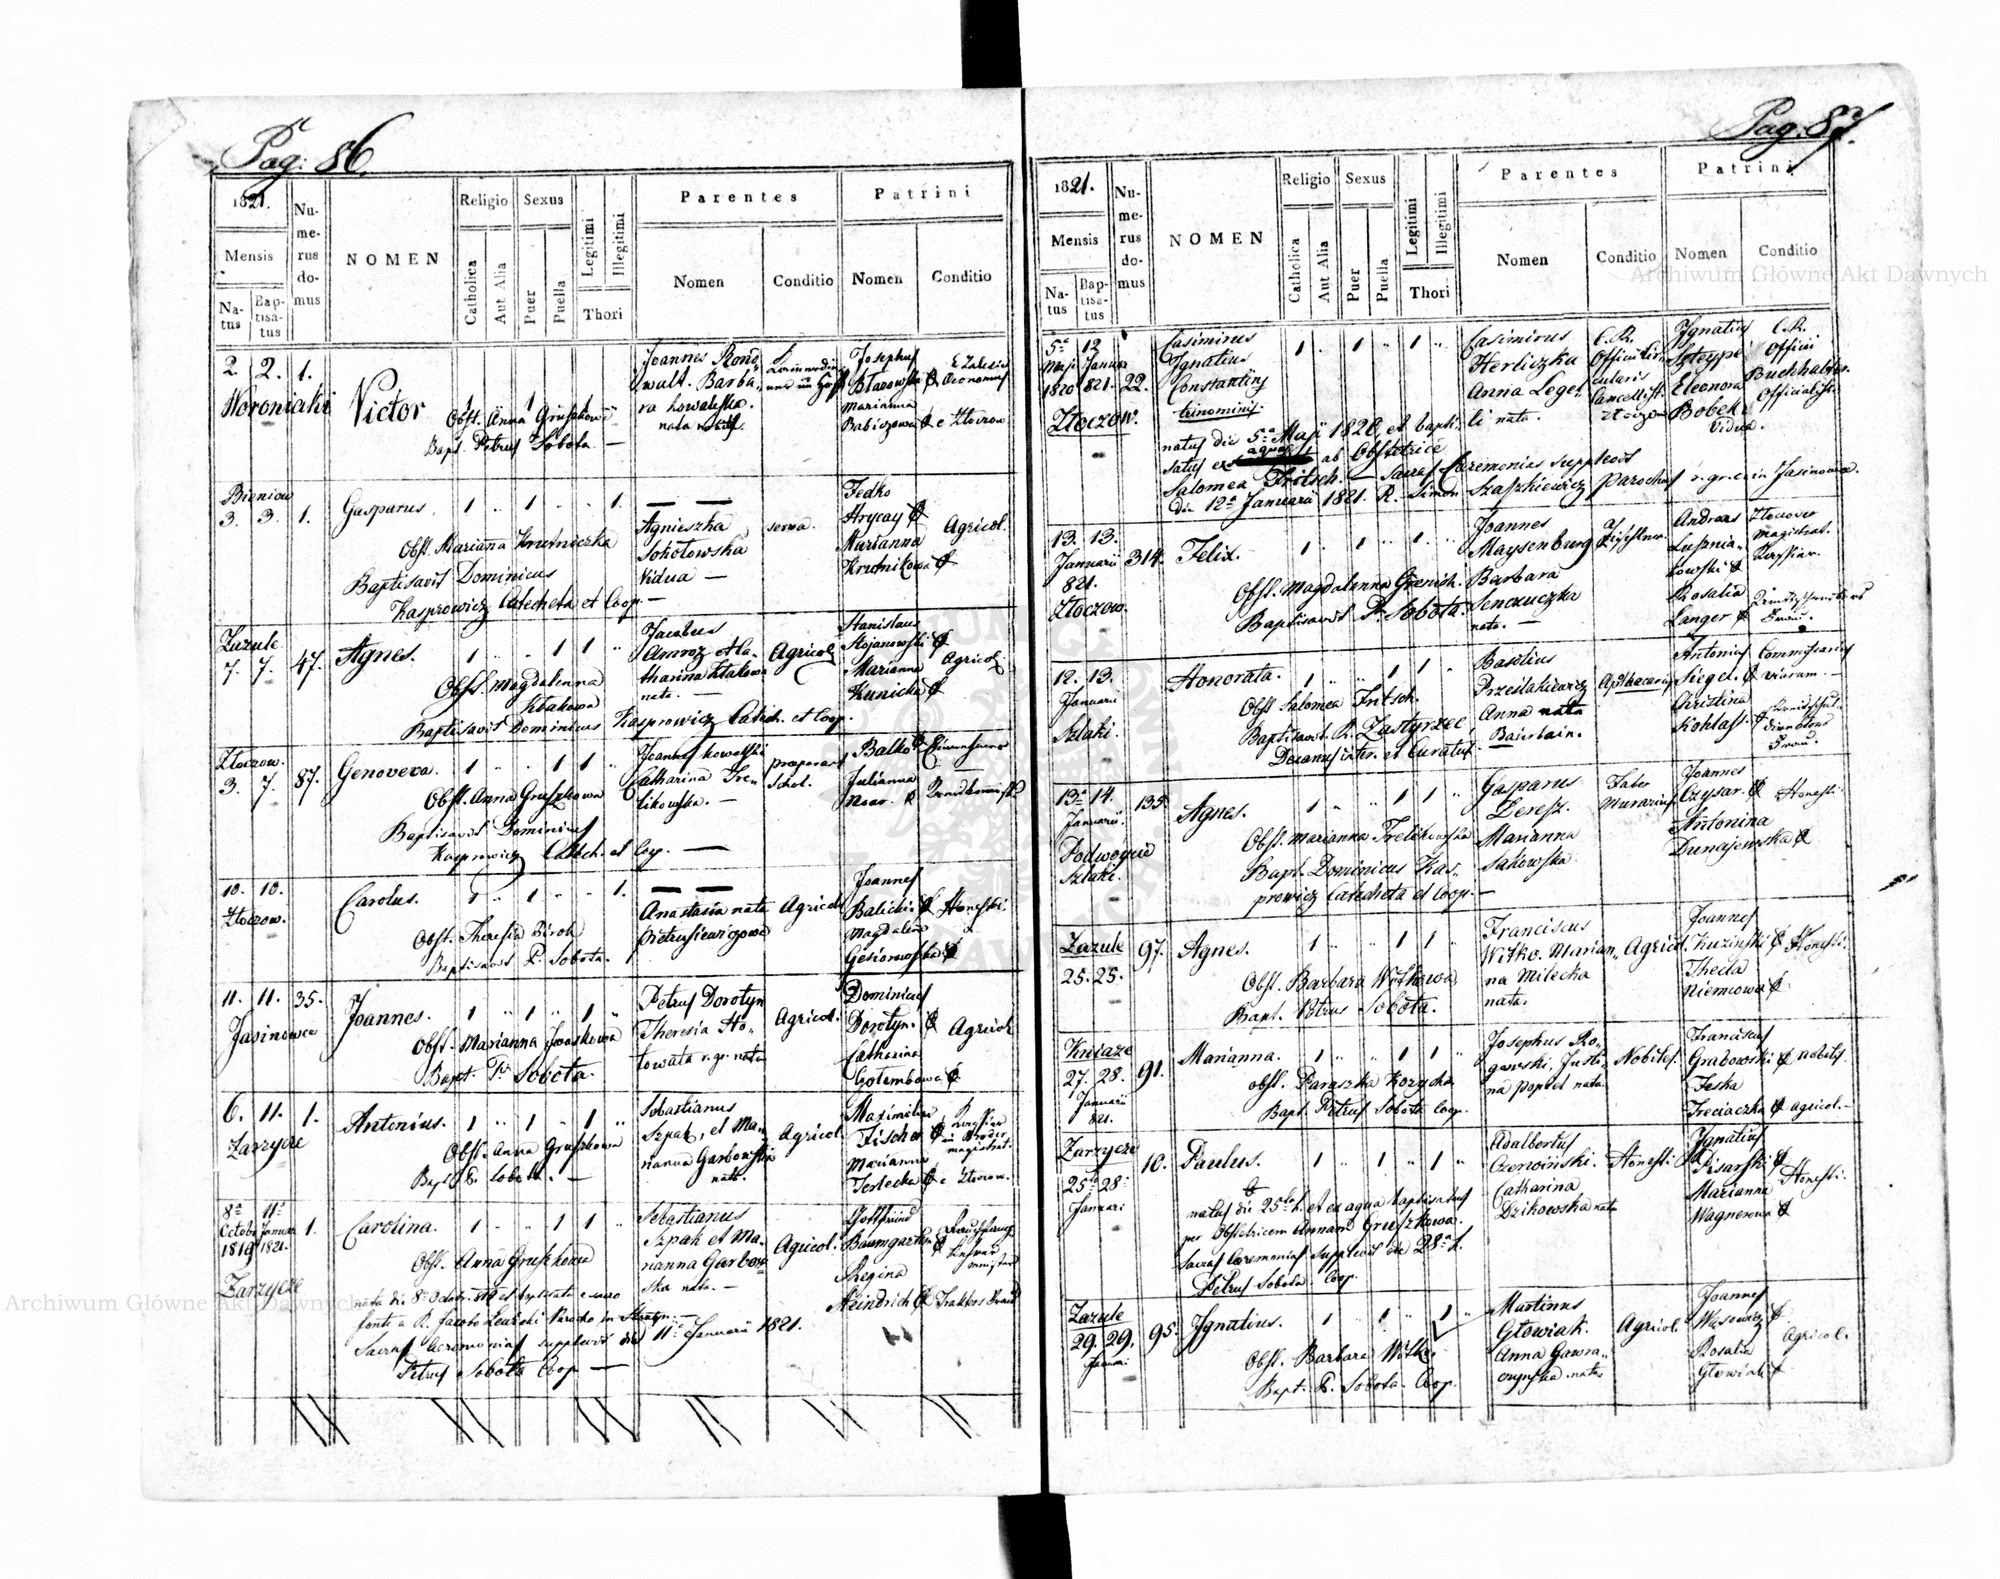 Pag: 86.
1821.
Mensis
Natus
Baptisatus
Numerus domus
NOMEN
Religio
Catholica
Aut Alia
Sexus
Puer
Puella
Legitimi
Illegitimi
Thori
Parentes
Nomen
Conditio
Patrini
Nomen
Conditio
2. 2. 1.
Woroniaki
Victor
Obst. Anna Gruszkowa
Bapt. Petrus Sobota —
Joannes
Barba-
ra Kowalska
nata
Josephus
Marianna
e Złoczow
Bieniow
3. 3. 1.
Gasparus. 1 " 1 " " 1.
Obst. Marianna Krutniczka
Baptisavit Dominicus
Kasprowicz Catecheta et Coop. —
Agnieszka
Sokołowska
Vidua —
serva.
Fedko
Hrycay
Marianna
Krutnikowa
Agricol.
Zazule
7. 7. 47.
Agnes. 1 " " 1 1 "
Obst. Magdalenna
Kłakowa
Baptisavit Dominicus Kasprowicz Catech. et Coop.
Jacobus
Amroz Ca-
tharina Kłakowa
nata. —
Agricol
Stanislaus
Stojanowski
Marianna
Kunicka
Agricol
Złoczow.
3. 7. 87.
Genoveva. 1 " " 1 1 "
Obst. Anna Gruszkowa
Baptisavit Dominicus
Kasprowicz Catech. et Coop. —
Joannes Kowalski
Catharina Tre-
likowska. —
praeparand
Schol.
Balko
Julianna
10. 10.
Złoczow.
Carolus. 1 " 1 " " 1.
Obst. Theresia
Baptisavit P. Sobota.
Anastasia nata
Pietrusiewiczowa
Agricol
Joannes
Balicki
Magdalena
Gesiorowska
Honesti.
11. 11. 35.
Jasinowce
Joannes. 1 " 1 " 1 "
Obst. Marianna Jwaskowa
Bapt. P. Sobota.
Petrus Dorotyn
Theresia Ho-
towata r. gr. nata
Agricol.
Dominicus
Dorotyn.
Catharina
Gołembowa
Agricol
6. 11. 1.
Zarzyce
Antonius. 1 " 1 " 1 "
Obst. Anna Gruszkowa
Bapt. P. Sobota. —
Sebastianus
Szpak, et Ma-
rianna Garbowska
nata.
Agricol.
Maximilian
Fischer
Marianna
Terlecka
magistrat.
e Złoczow.
8a 11a
Octobr Januar
1819 1821. 1.
Zarzyce
Carolina. 1 " " 1 1 "
Obst. Anna Gruszkowa
nata die 8a Octobr. 819 et baptisata e sacro
fonte a R. Jacobo Parocho in
Sacras Ceremonias supplevit die 11a Januarii 1821.
Petrus Sobota Coop —
Sebastianus
Szpak et Ma-
rianna Garbow-
ska nata. —
Agricol.
Gottfried
Baumgarten
Regina
Heindrich
Pag: 87.
1821.
Mensis
Natus
Baptisatus
Numerus domus
NOMEN
Religio
Catholica
Aut Alia
Sexus
Puer
Puella
Legitimi
Illegitimi
Thori
Parentes
Nomen
Conditio
Patrini
Nomen
Conditio
5a 12
Maji Januar
1820 821. 22.
Złoczow.
Casimirus
Ignatius
Constantinus
trinominis.
1 " 1 " 1 "
natus die 5a Maji 1820 et bapti-
satus ex aqua ab Obstetrice
Salomea Fritsch. — Sacras Ceremonias supplevit
die 12a Januarii 1821. R. Simon Szaszkiewicz Parochus r. gr. c. in Jasinowce.
Casimirus
Herliczka
Anna Leget-
li nata.
C. R.
Ignatius
Eleonora
Bobek
Vidua.
C. R.
Officii
Buchhalter.
Officialista
13. 13.
Januarii 314.
821.
Złoczow.
Felix. 1 " 1 " 1 "
Obst. Magdalenna Grenich.
Baptisavit P. Sobota.
Joannes
Maysenburg
Barbara
Senczuczka
nata. —
Tischler
Andreas
Luznia-
kowski
Rosalia
Langer
Złoczover
Magistrat.
12. 13.
Januarii
Szlaki.
Honorata. 1 " " 1 1 "
Obst Salomea Fritsch.
Baptisavit R. Zastyrzec,
Decanus inter. et Curatus.
Basilius
Prześlakiewicz
Anna nata
Bairlain.
Apthecarius
Antonius
Siegel.
Christina
Kohlass
Commissarius
viarum. —
13a 14.
Januarii. 135.
Podwoycie
Szlaki.
Agnes. 1 " " 1 1 "
Obst. Marianna Trelikowska
Bapt. Dominicus Kas-
prowicz Catecheta et Coop. —
Gasparus
Deresz.
Marianna
Sakowska
Faber
Murarius
Joannes
Czysar.
Antonina
Dunajewska
Honesti.
Zazule
25. 25. 97.
Agnes. 1 " " 1 1 "
Obst. Barbara Witkowa
Bapt. Petrus Sobota.
Franciscus
Witko. Marian-
na Milecka
nata.
Agricol.
Joannes
Kuzinski
Thecla
Niemcowa
Honesti.
Kniaze
27. 28. 91.
Januarii
821.
Marianna. 1 " " 1 1 "
Obst. Paraszka Kozycka
Bapt. Petrus Sobota Coop.
Josephus Ro-
gowski, Justi-
na Popiel nata.
Nobiles.
Franciscus
Grabowski
Feska
Treciaczka
nobilis.
agricol. —
Zarzyce
25a 28a 10.
Januari
Paulus. 1 " 1 " 1 "
natus die 25ta h. et ex aqua baptisatus
per Obstetricem Annam Gruszkowa.
Sacras Ceremonias supplevit die 28a h.
Petrus Sobota Coop.
Adalbertus
Czerwiński.
Catharina
Dzikowska nata
Honesti
Ignatius
Pisarski
Marianna
Wagnerowa
Honesti.
Zazule
29. 29. 95.
Januari.
Ignatius. 1 " 1 " 1 "
Obst. Barbara Witko.
Bapt. P. Sobota. Coop.
Martinus
Głowiak.
Anna Gawra-
czynska nata
Agricol.
Joannes
Wąsowicz
Rosalia
Głowiak
Agricol.
Archiwum Główne Akt Dawnych
Archiwum Główne Akt Dawnych